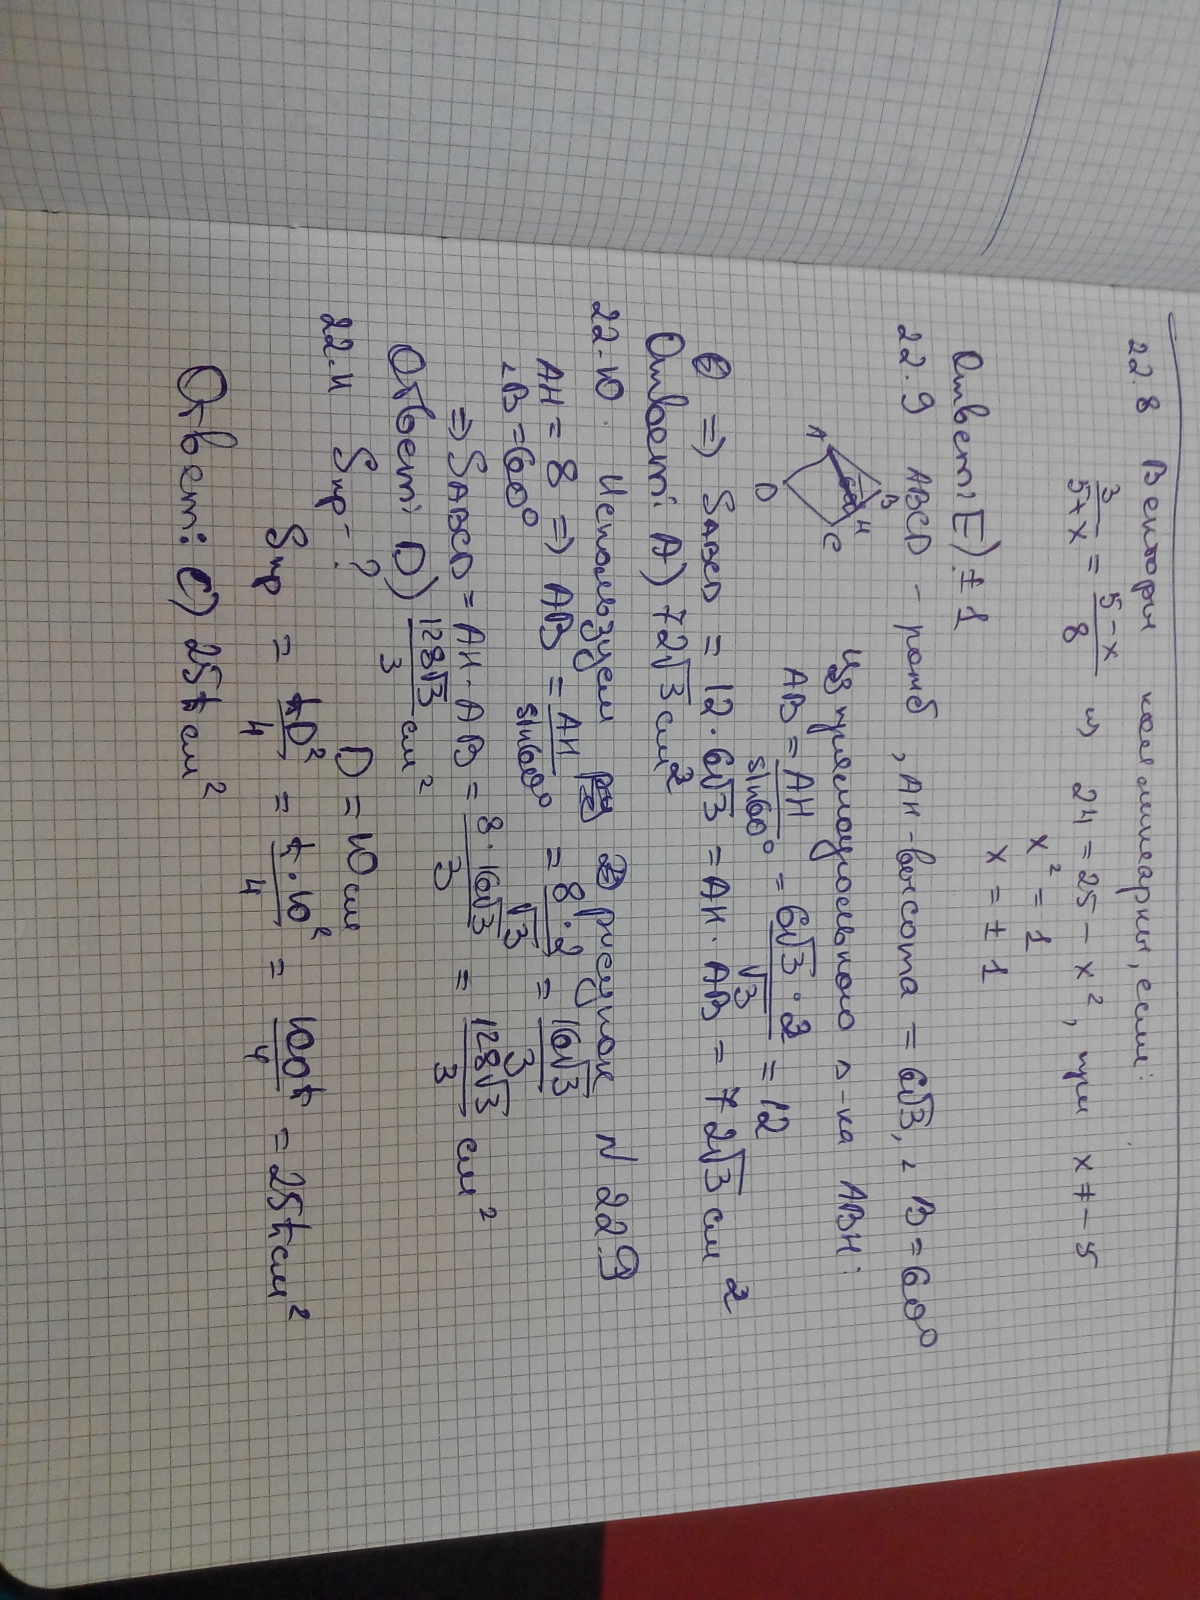 22.8 Векторы коллинеарны, если:
3/(5+x) = (5-x)/8 ⇒ 24 = 25 - x², при x ≠ -5
x² = 1
x = ± 1
Ответ: E) ± 1
22.9 ABCD - ромб, AH - высота = 6√3, ∠B = 60°
A B H C D 60°
Из прямоугольного Δ-ка ABH:
AB = AH/sin60° = 6√3·2/√3 = 12
⇒ SABCD = 12·6√3 = AH·AB = 72√3 см²
Ответ: A) 72√3 см²
22.10. Используем рисунок N 22.9
AH = 8 ⇒ AB = AH/sin60° = 8·2/√3 = 16√3/3
∠B = 60°
⇒ SABCD = AH·AB = 8·16√3/3 = 128√3/3 см²
Ответ: D) 128√3/3 см²
22.11 Sкр = ? D = 10 см
Sкр = πD²/4 = π·10²/4 = 100π/4 = 25π см²
Ответ: C) 25π см²